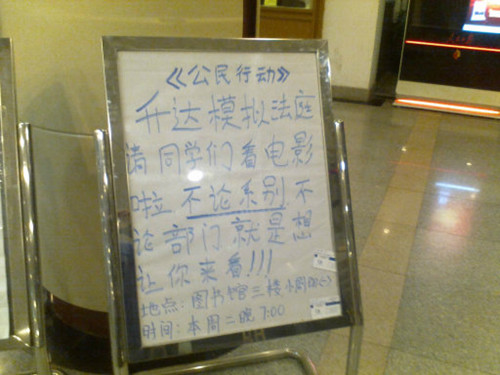 《公民行动》
升达模拟法庭
请同学们看电影
啦 不论系别 不
论部门就是想
让你来看!!!
地点:图书馆三楼小剧场(一)
时间:本周二晚7:00